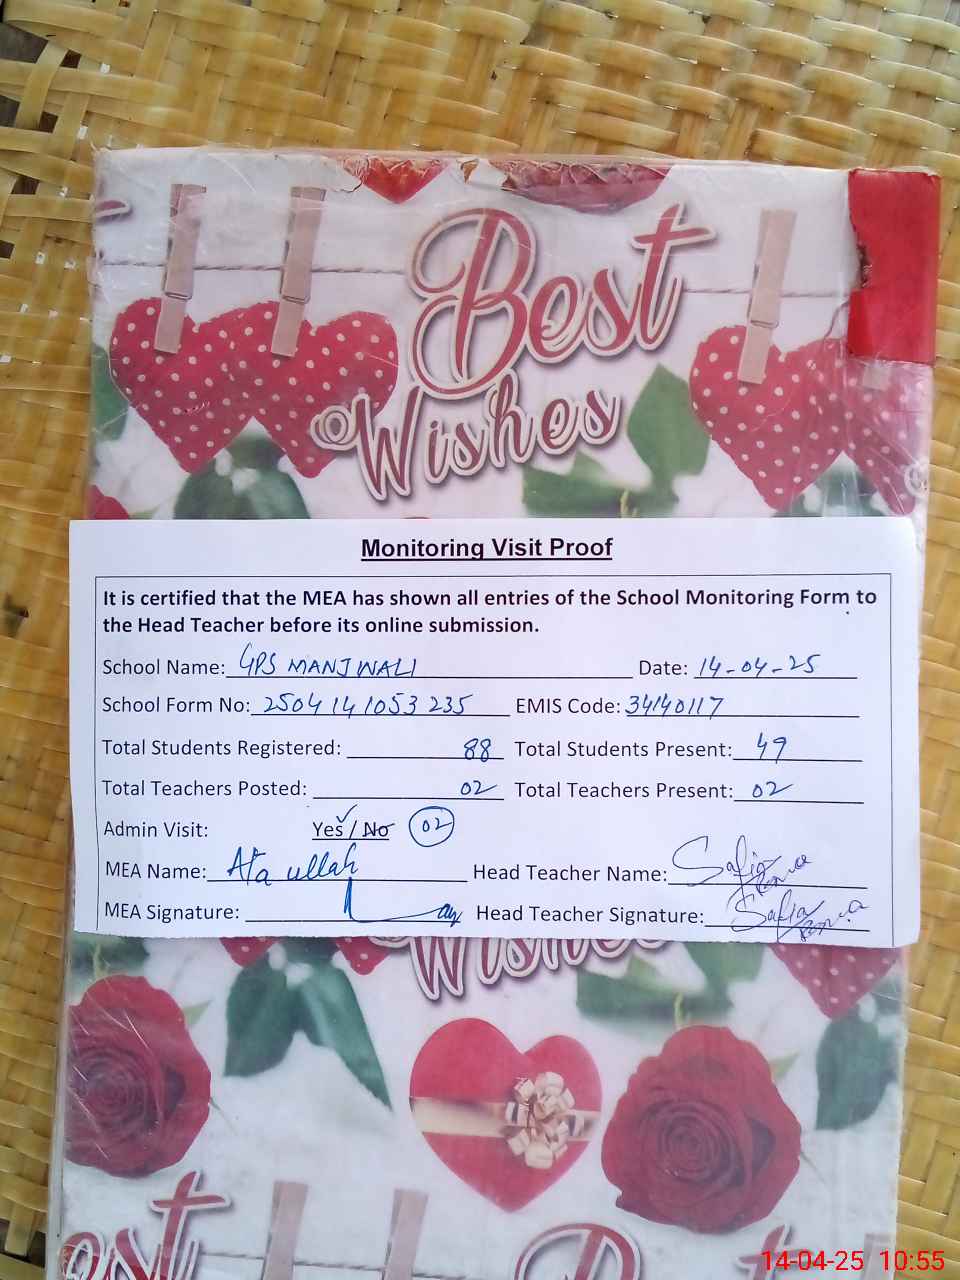 Best
Wishes
Monitoring Visit Proof
It is certified that the MEA has shown all entries of the School Monitoring Form to
the Head Teacher before its online submission.
School Name: GPS MANJWALI Date: 14-04-25
School Form No: 2504141053235 EMIS Code: 34140117
Total Students Registered: 88 Total Students Present: 49
Total Teachers Posted: 02 Total Teachers Present: 02
Admin Visit: Yes / No 02
MEA Name: Ata ullah Head Teacher Name: Safia
MEA Signature: Head Teacher Signature: Safia
Wishes
est
14-04-25 10:55